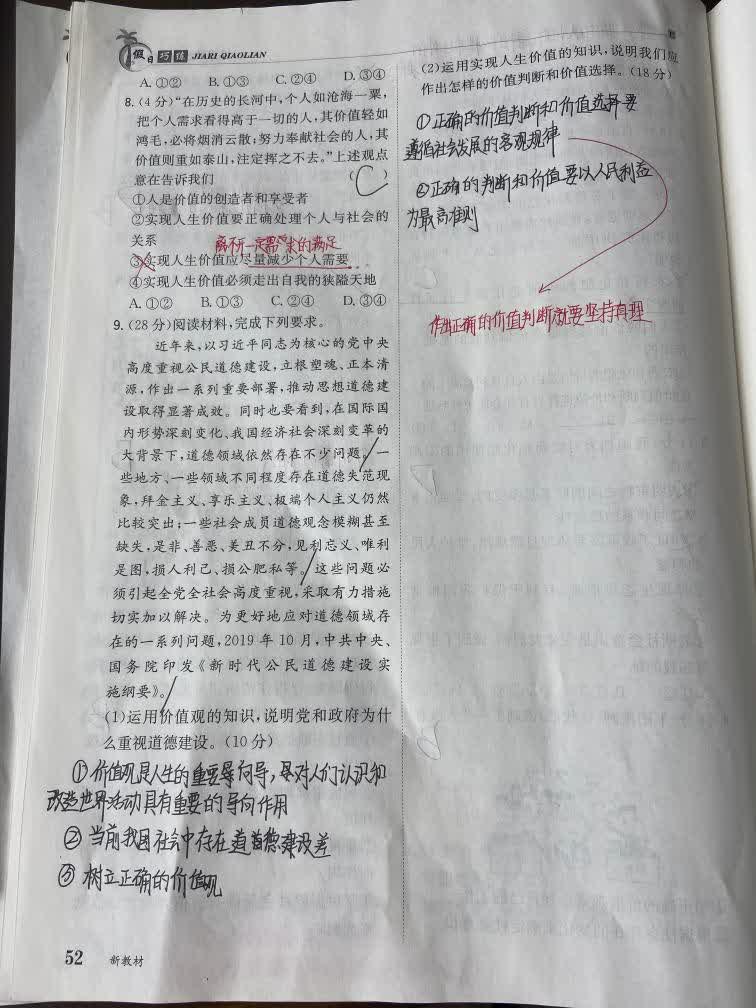 假日巧练 JIARI QIAOLIAN
A.①② B.①③ C.②④ D.③④
8.(4分)“在历史的长河中,个人如沧海一粟,
把个人需求看得高于一切的人,其价值轻如
鸿毛,必将烟消云散;努力奉献社会的人,其
价值则重如泰山,注定挥之不去。”上述观点
意在告诉我们 (C)
①人是价值的创造者和享受者
②实现人生价值要正确处理个人与社会的
关系
离不开一定需求的满足
③实现人生价值应尽量减少个人需要
④实现人生价值必须走出自我的狭隘天地
A.①② B.①③ C.②④ D.③④
9.(28分)阅读材料,完成下列要求。
近年来,以习近平同志为核心的党中央
高度重视公民道德建设,立根塑魂、正本清
源,作出一系列重要部署,推动思想道德建
设取得显著成效。同时也要看到,在国际国
内形势深刻变化、我国经济社会深刻变革的
大背景下,道德领域依然存在不少问题。一
些地方、一些领域不同程度存在道德失范现
象,拜金主义、享乐主义、极端个人主义仍然
比较突出;一些社会成员道德观念模糊甚至
缺失,是非、善恶、美丑不分,见利忘义、唯利
是图,损人利己、损公肥私等。这些问题必
须引起全党全社会高度重视,采取有力措施
切实加以解决。为更好地应对道德领域存
在的一系列问题,2019年10月,中共中央、
国务院印发《新时代公民道德建设实
施纲要》。
(1)运用价值观的知识,说明党和政府为什
么重视道德建设。(10分)
①价值观是人生的重要导向,对人们认识和
改造世界活动具有重要的导向作用
②当前我国社会中存在道德建设差
③树立正确的价值观
52 新教材
(2)运用实现人生价值的知识,说明我们应
作出怎样的价值判断和价值选择。(18分)
①正确的价值判断和价值选择要
遵循社会发展的客观规律
②正确的判断和价值要以人民利益
为最高准则
作出正确的价值判断就要坚持真理